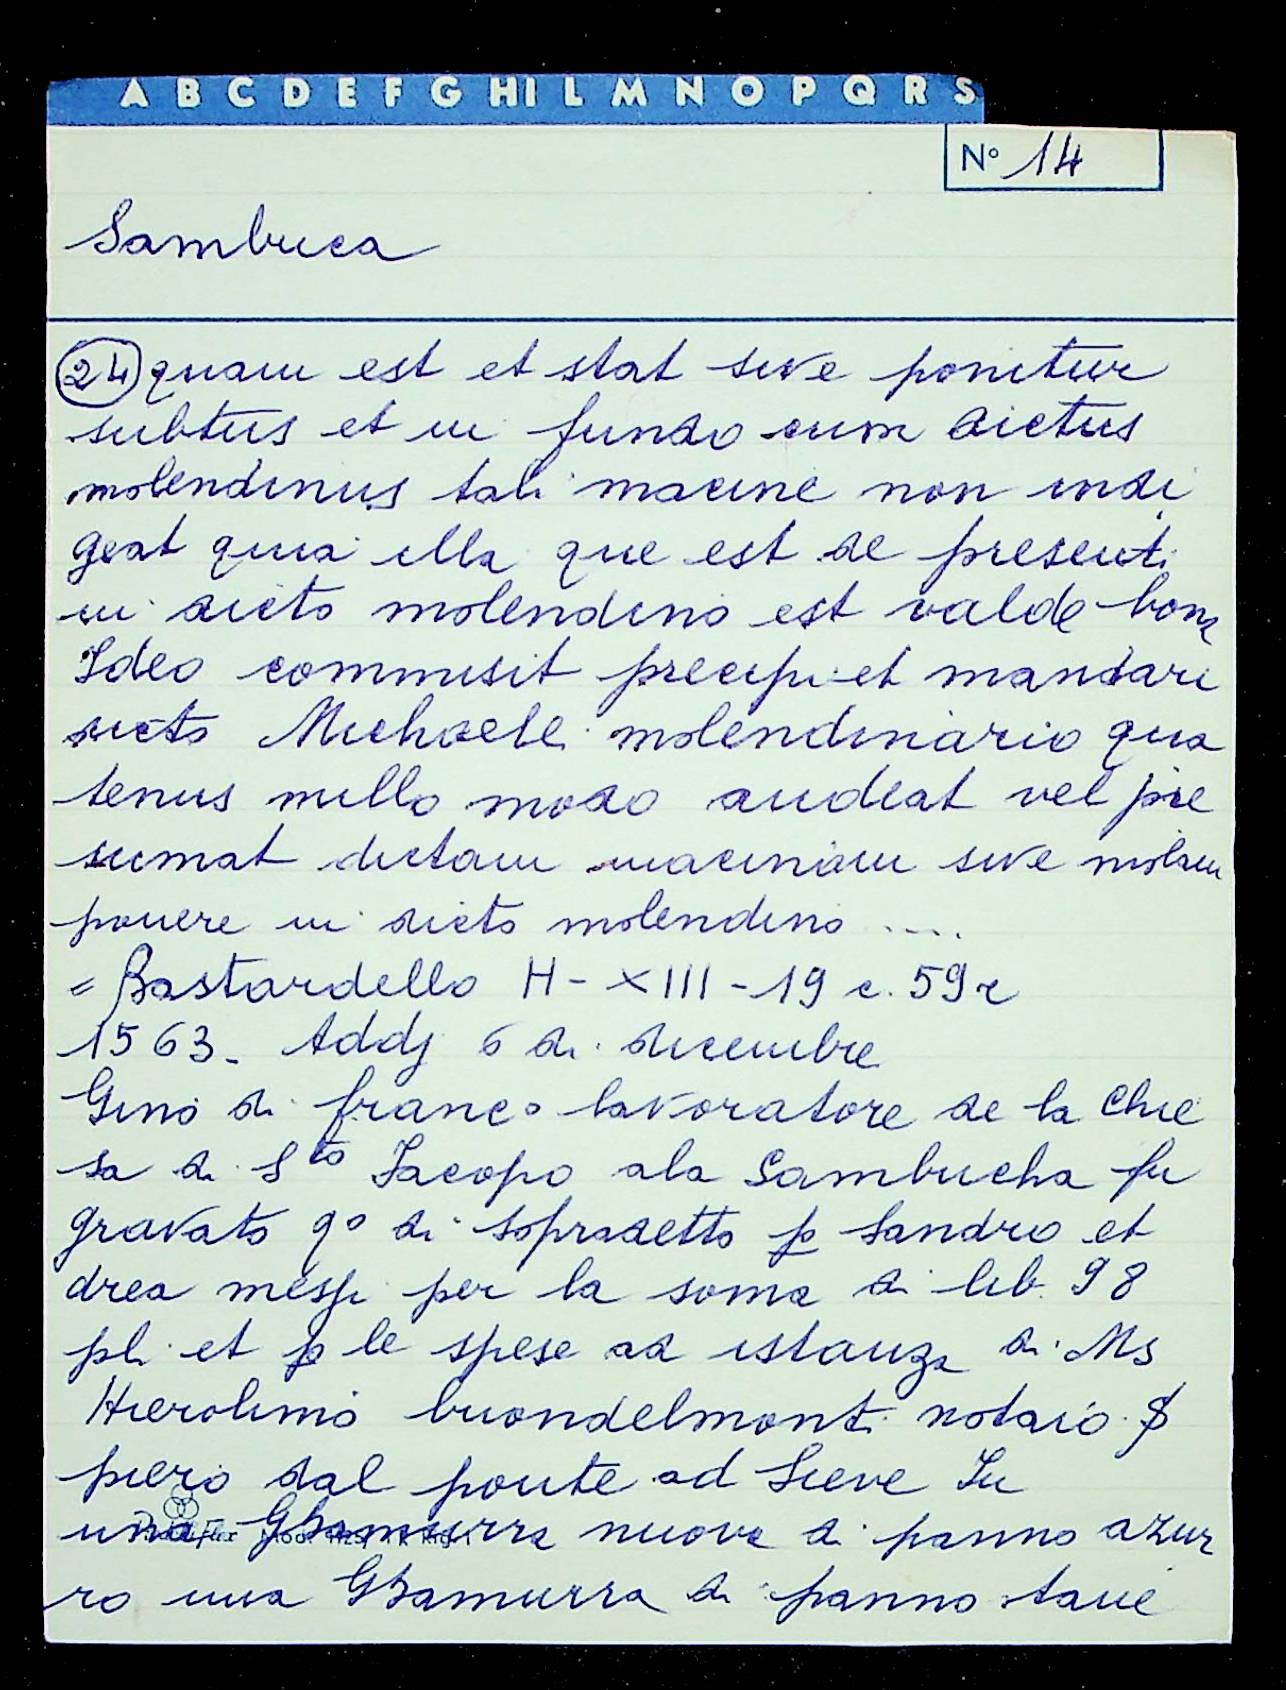 A B C D E F G H I L M N O P Q R S
N° 14
Sambuca
24 quam est et stat sive ponitur
subtus et in fundo cum dictus
molendinus tali macine non indi
geat quia illa que est de presenti
in dicto molendino est valde bona
Ideo commisit precipi et mandari
dicto Michaele molendinario qua
tenus nullo modo audeat vel pre
sumat dictam macinam sive molam
ponere in dicto molendino ....
= Bastardello H - XIII - 19 c. 59 r
1563. Addj 6 di dicembre
Gino di franc° lavoratore de la Chie
sa di Sto Jacopo ala Sambucha fu
gravato q° di sopradetto p Sandro et
drea messi per la soma di lib. 98
pli et p le spese ad istanza di Ms
Hierolimo buondelmonti notaio
piero dal ponte ad Sieve In
una Ghamurra nuova di panno azur
ro una Ghamurra di panno tané